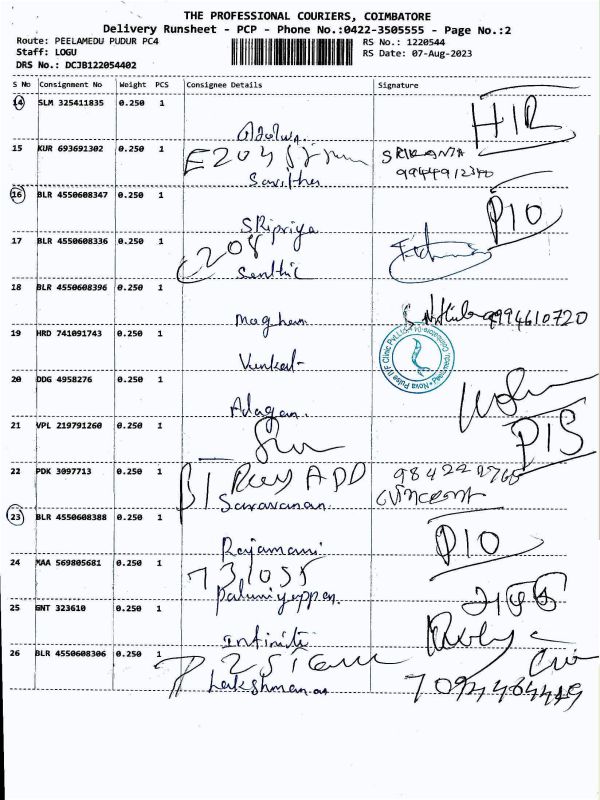 THE PROFESSIONAL COURIERS, COIMBATORE
Delivery Runsheet - PCP - Phone No.:0422-3505555 - Page No.:2
Route: PEELAMEDU PUDUR PC4
RS No.: 1220544
Staff: LOGU
RS Date: 07-Aug-2023
DRS No.: DCJB122054402
S No Consignment No Weight PCS Consignee Details Signature
14 SLM 325411835 0.250 1
HIR
15 KUR 693691302 0.250 1
E204
SRIKANTA
Savitha
16 BLR 4550608347 0.250 1
P10
SRipriya
17 BLR 4550608336 0.250 1
C208
Senthil
18 BLR 4550608396 0.250 1
9994610720
Magham
19 HRD 741091743 0.250 1
Nova Pulse IVF Clinic Pvt.Ltd.
Venkat
20 DDG 4958276 0.250 1
Adagan
21 VPL 219791260 0.250 1
P15
22 PDK 3097713 0.250 1
B1
Saravanan
23 BLR 4550608388 0.250 1
P10
Rajamani
24 MAA 569805681 0.250 1
Palaniyappan
25 GNT 323610 0.250 1
Infiniti
26 BLR 4550608306 0.250 1
Lakshmanan
7094464449